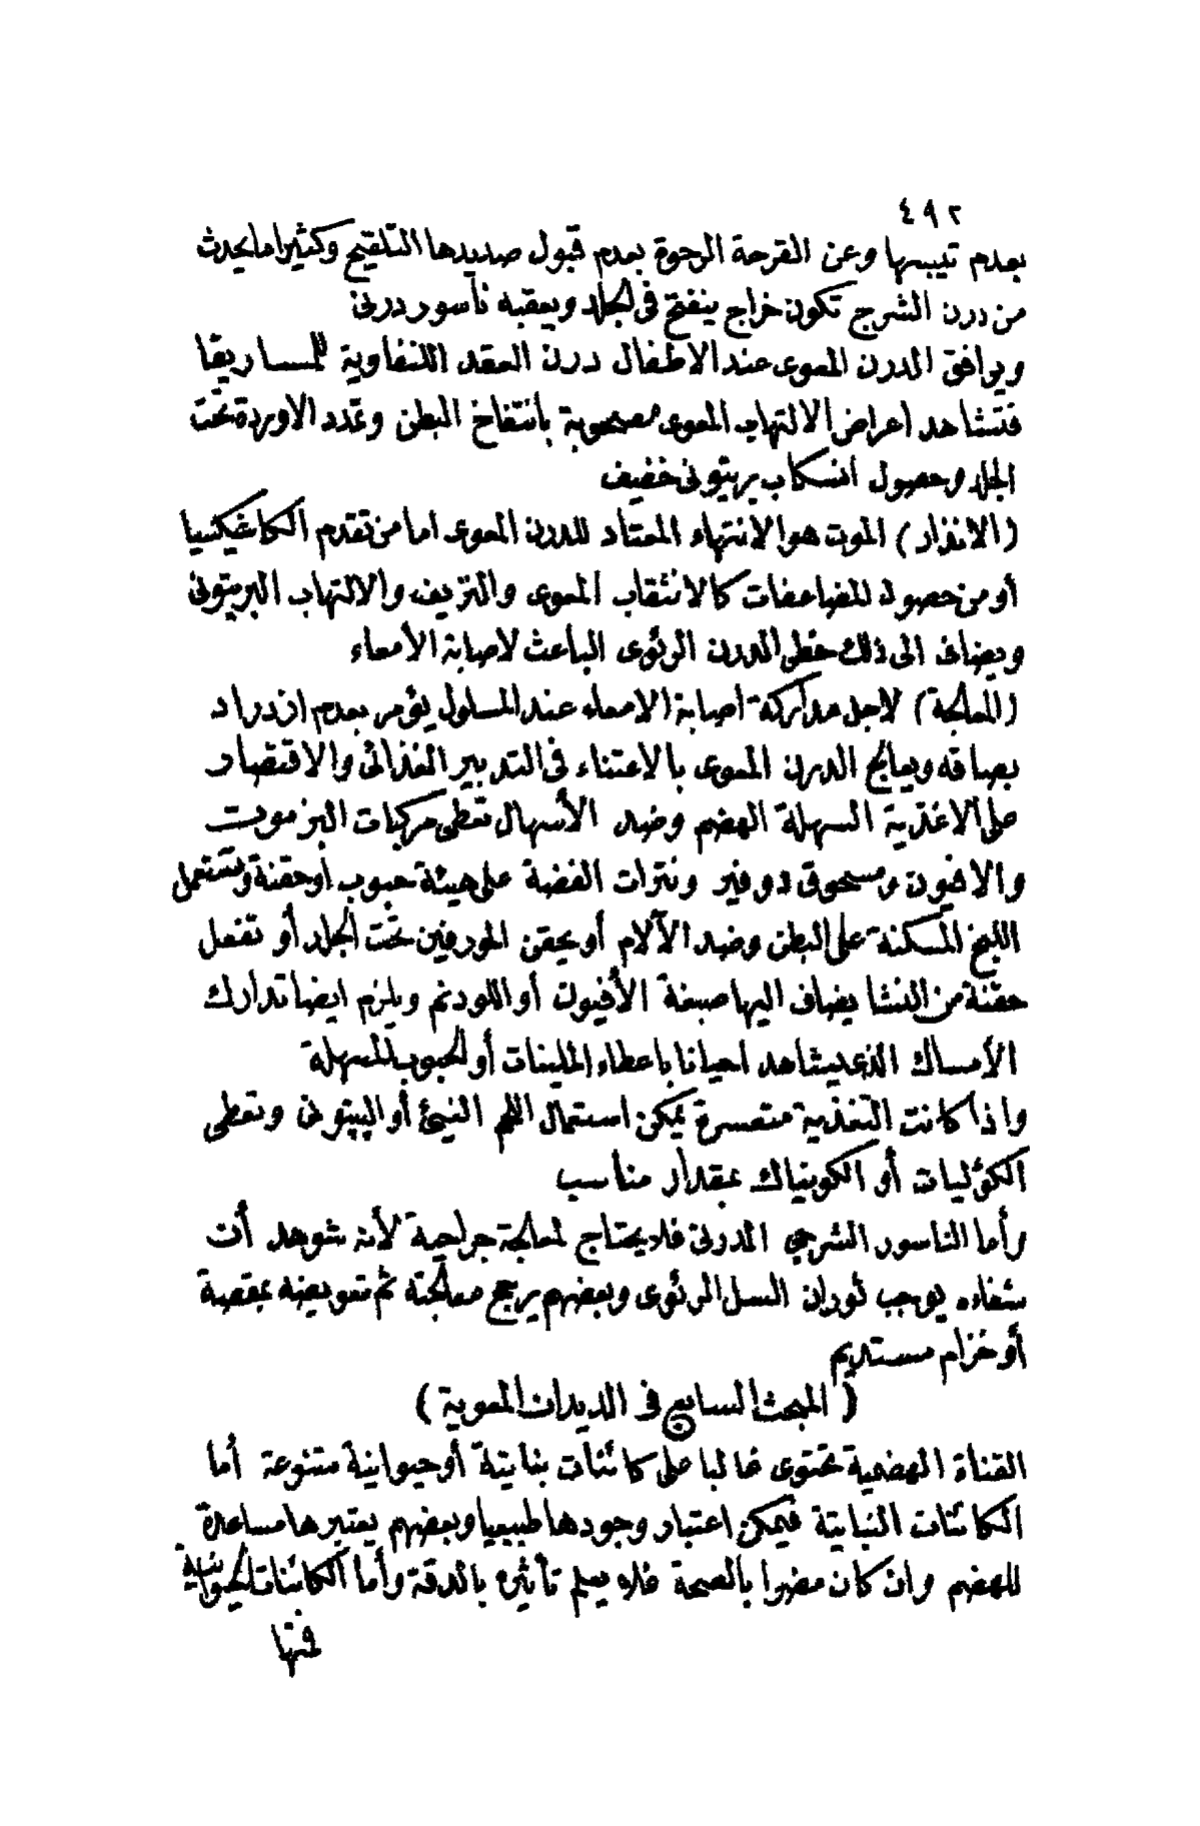 ٤٩٢
بعدم تيبسها وعن القرحة الرخوة بعدم قبول صديدها التلقيح وكثيراما يحدث
من درن الشرج تكون خراج ينفتح فى الجلد ويعقبه ناسور درنى
ويرافق الدرن المعوى عند الاطفال درن العقد اللنفاوية للمساريقا
فتشاهد اعراض الالتهاب المعوى مصحوبة بانتفاخ البطن وتمدد الاوردة تحت
الجلد وحصول انسكاب بريتونى خفيف
(الانذار) الموت هو الانتهاء المعتاد للدرن المعوى اما من تقدم الكاغيكسيا
أو من حصول المضاعفات كالانثقاب المعوى والنزيف والالتهاب البريتونى
ويضاف الى ذلك خطر الدرن الرئوى الباعث لاصابة الأمعاء
(المعالجة) لاجل مداركة اصابة الامعاء عند المسلول يؤمر بعدم ازدراد
بصاقه ويعالج الدرن المعوى بالاعتناء فى التدبير الغذائى والاقتصار
على الاغذية السهلة الهضم وضد الأسهال تعطى مركبات البزموت
والافيون ومسحوق دوفير ونترات الفضة على هيئة حبوب أو حقنة وتستعمل
اللبخ المسكنة على البطن وضد الآلام أو يحقن المورفين تحت الجلد أو تفعل
حقنة من النشا يضاف اليها صبغة الأفيون أو اللودنم ويلزم ايضا تدارك
الأمساك الذى يشاهد احيانا باعطاء الملينات أو الحبوب المسهلة
واذا كانت التغذية متعسرة يمكن استعمال اللحم النيئ أو الپپتونى وتعطى
الكؤليات أو الكونياك بمقدار مناسب
وأما الناسور الشرجى الدرنى فلا يحتاج لمعالجة جراحية لأنه شوهد أن
شفاءه يوجب ثوران السل الرئوى وبعضهم يرجح معالجته ثم تعويضه بمقصة
أو خزام مستديم
(المبحث السابع فى الديدان المعوية)
القناة الهضمية تحتوى غالبا على كائنات نباتية أو حيوانية متنوعة أما
الكائنات النباتية فيمكن اعتبار وجودها طبيعيا وبعضهم يعتبرها مساعدة
للهضم وان كان مضرا بالصحة فلا يعلم تأثيره بالدقة وأما الكائنات الحيوانية
فمنها